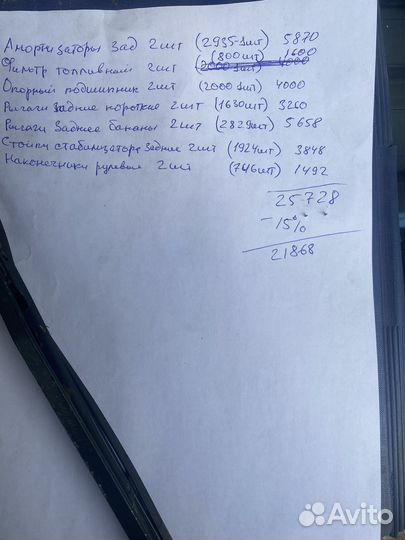 Амортизаторы зад 2 шт (2935-1шт) 5870
Фильтр топливный 2 шт (800 шт) 1600
(2000 1шт) 4000
Опорный подшипник 2 шт (2000 1шт) 4000
Рычаги задние короткие 2 шт (1630шт) 3260
Рычаги заднее бананы 2 шт (2829шт) 5658
Стойки стабилизатора задние 2 шт (1924шт) 3848
Наконечники рулевые 2 шт (746шт) 1492
25728
- 15%
21868
Avito